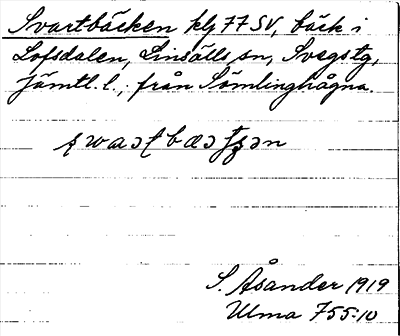 Svartbäcken klf 77 SV, bäck i
Lofsdalen, Linsälls sn, Svegs tg,
Jämtl. l.; från Sömlinghågna.
S. Åsander 1919
Ulma 755:10